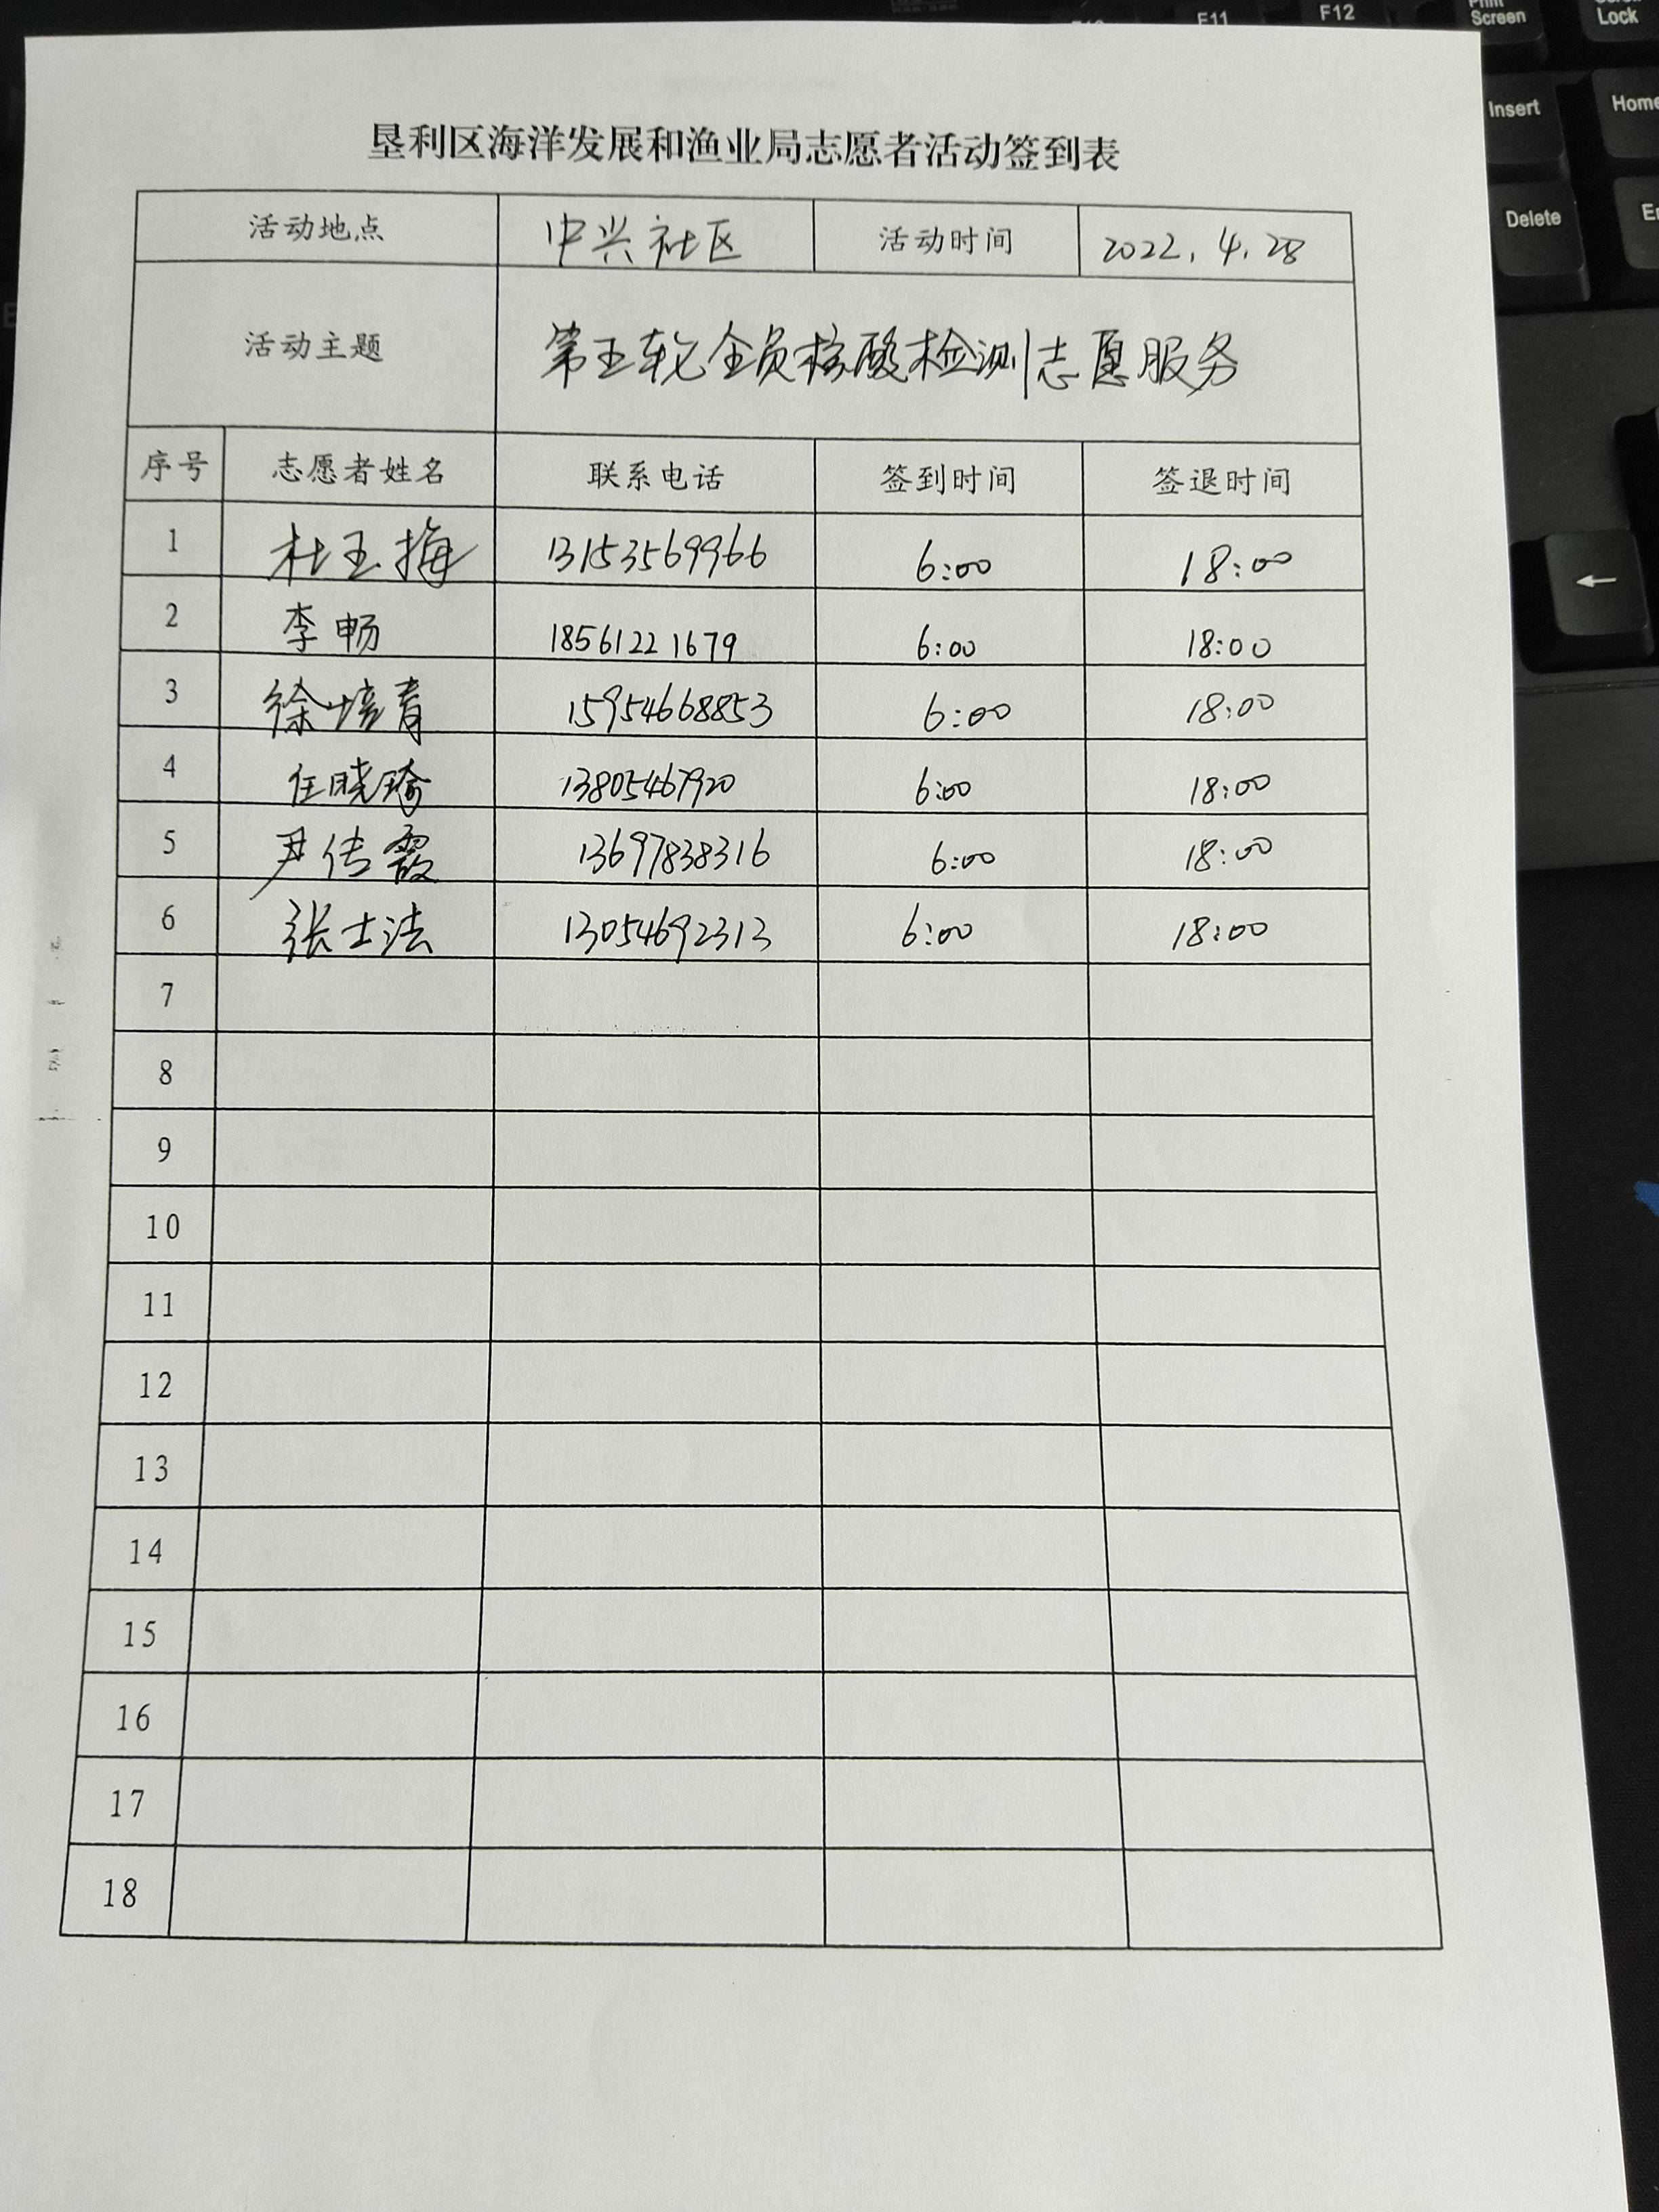 垦利区海洋发展和渔业局志愿者活动签到表
活动地点 中兴社区 活动时间 2022.4.28
活动主题 第五轮全员核酸检测志愿服务
序号 志愿者姓名 联系电话 签到时间 签退时间
1 杜玉梅 13153569966 6:00 18:00
2 李畅 18561221679 6:00 18:00
3 徐培青 15954668853 6:00 18:00
4 任晓瑜 13805467920 6:00 18:00
5 尹传霞 13697838316 6:00 18:00
6 张士法 13054692313 6:00 18:00
7
8
9
10
11
12
13
14
15
16
17
18
F11
F12
Screen
Lock
Insert
Home
Delete